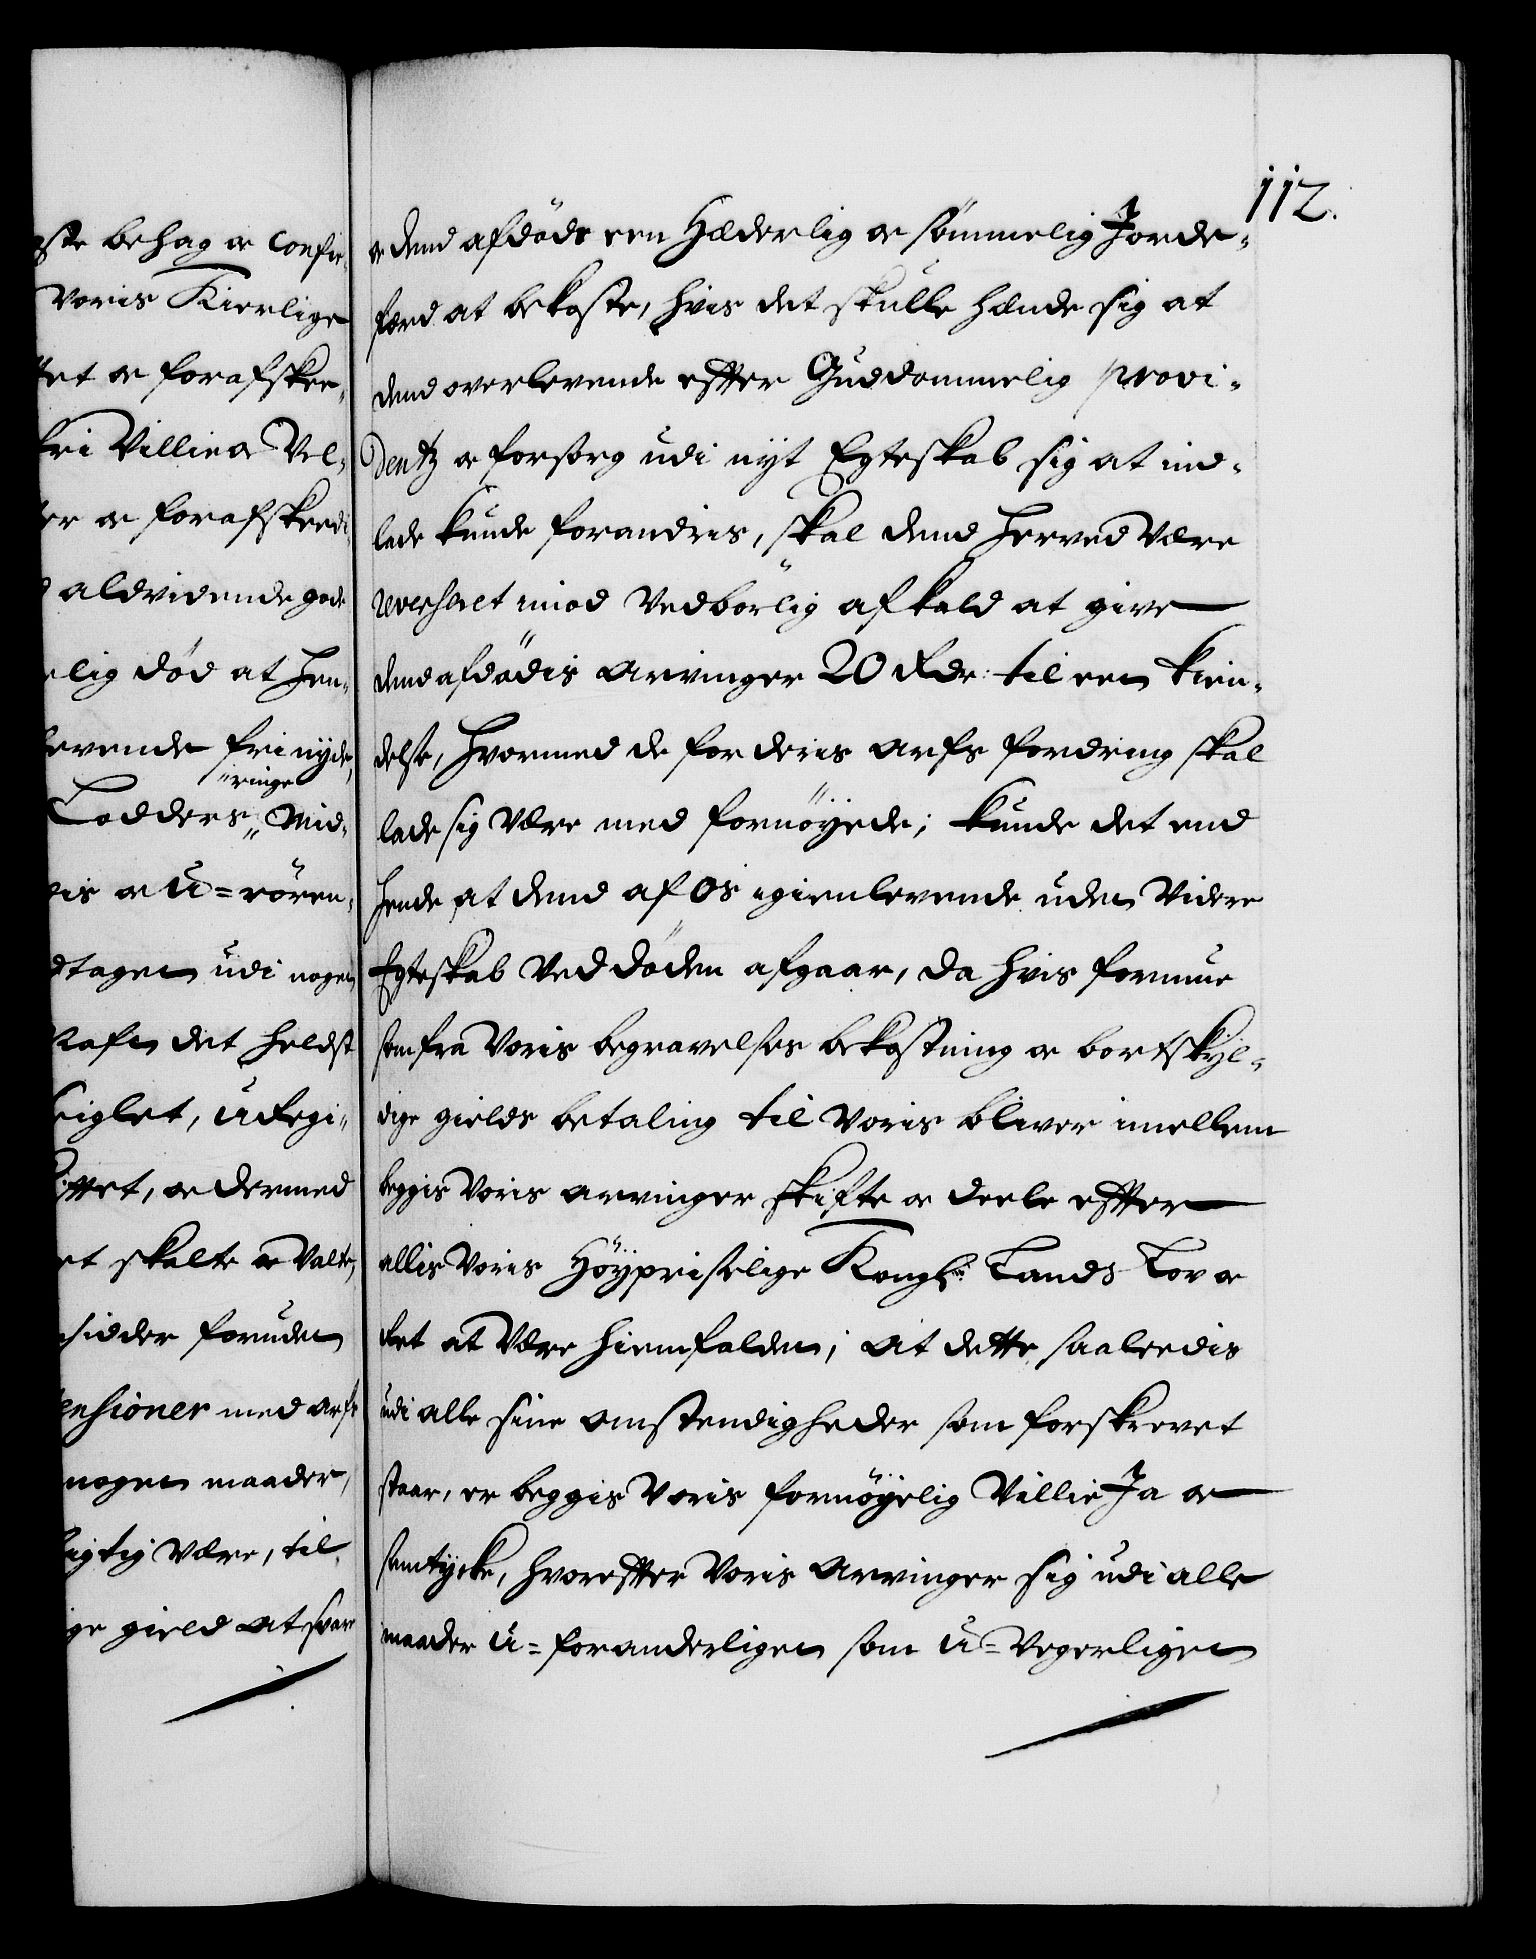 112.
oste behag oc Confir-
Voris Kierlige
tet oc forafskee-
fri Villie oc Vel-
ter oc forafskeedi
aldvidende gode
elig død at hen-
levende fri nyde,
ringe
Lodders Mid-
oc U=rören-
dtagen udi nogen
det heldst
utegi-
ttet, oc dermed
et skalte oc Valte,
sidder foruden
ensioner med arfs
nogen maader,
rigtig Være, til
ge gield at svare
oc dend afdöde een Hæderlig oc sömmelig Jorde-
færd at bekoste, hvis det skulle hænde sig at
dend overlevende effter Guddommelig provi-
dentz oc forsorg udi nyt Egteskab sig at ind-
lade kunde forandris, skal dend herved Være
reverseret imod Vedbörlig afkald at give
dend afdödis arvinger 20 Rdr: til een kien-
delse, hvormed de for deris arfs fordring skal
lade sig Være med fornöyede; kunde det end
hende at dend af Os igienlevende uden Videre
Egteskab Ved döden afgaar, da hvis formue
som fra Voris begravelses bekostning oc bortskyl-
dige gields betaling til Voris bliver imellem
beggis Voris arvinger skifte oc deele effter
allis Voris Höypriselige Kongl: Lands Lov oc
Ret at Være hiemfalden; at dette saaleedis
udi alle sine omstendigheder som forskrevet
staar, er beggis Voris fornöyelig Villie Ja oc
samtycke, hvoreffter Voris arvinger sig udi alle
maader U=foranderligen som U=Vegerligen